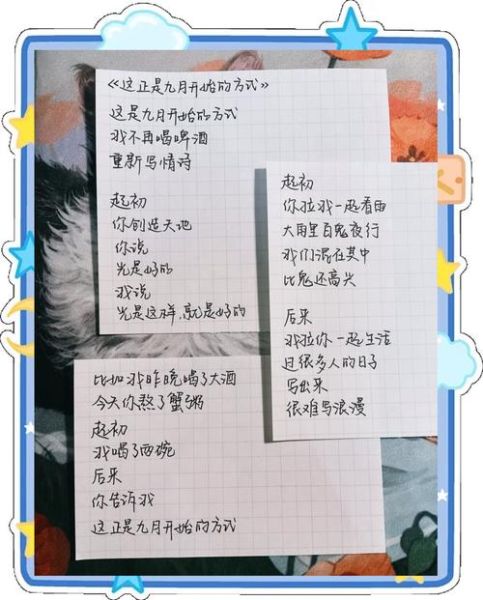 《这正是九月开始的方式》
这是九月开始的方式
我不再喝啤酒
重新写情诗
起初
你创造天地
你说
光是好的
我说
光是这样,就是好的
起初
你拉我一起看雨
大雨里百鬼夜行
我们混在其中
比鬼还高兴
后来
我拉你一起生活
过很多人的日子
写出来
很难写浪漫
比如我昨晚喝了大酒
今天你熬了蟹粥
起初
我喝了两碗
后来
你告诉我
这正是九月开始的方式